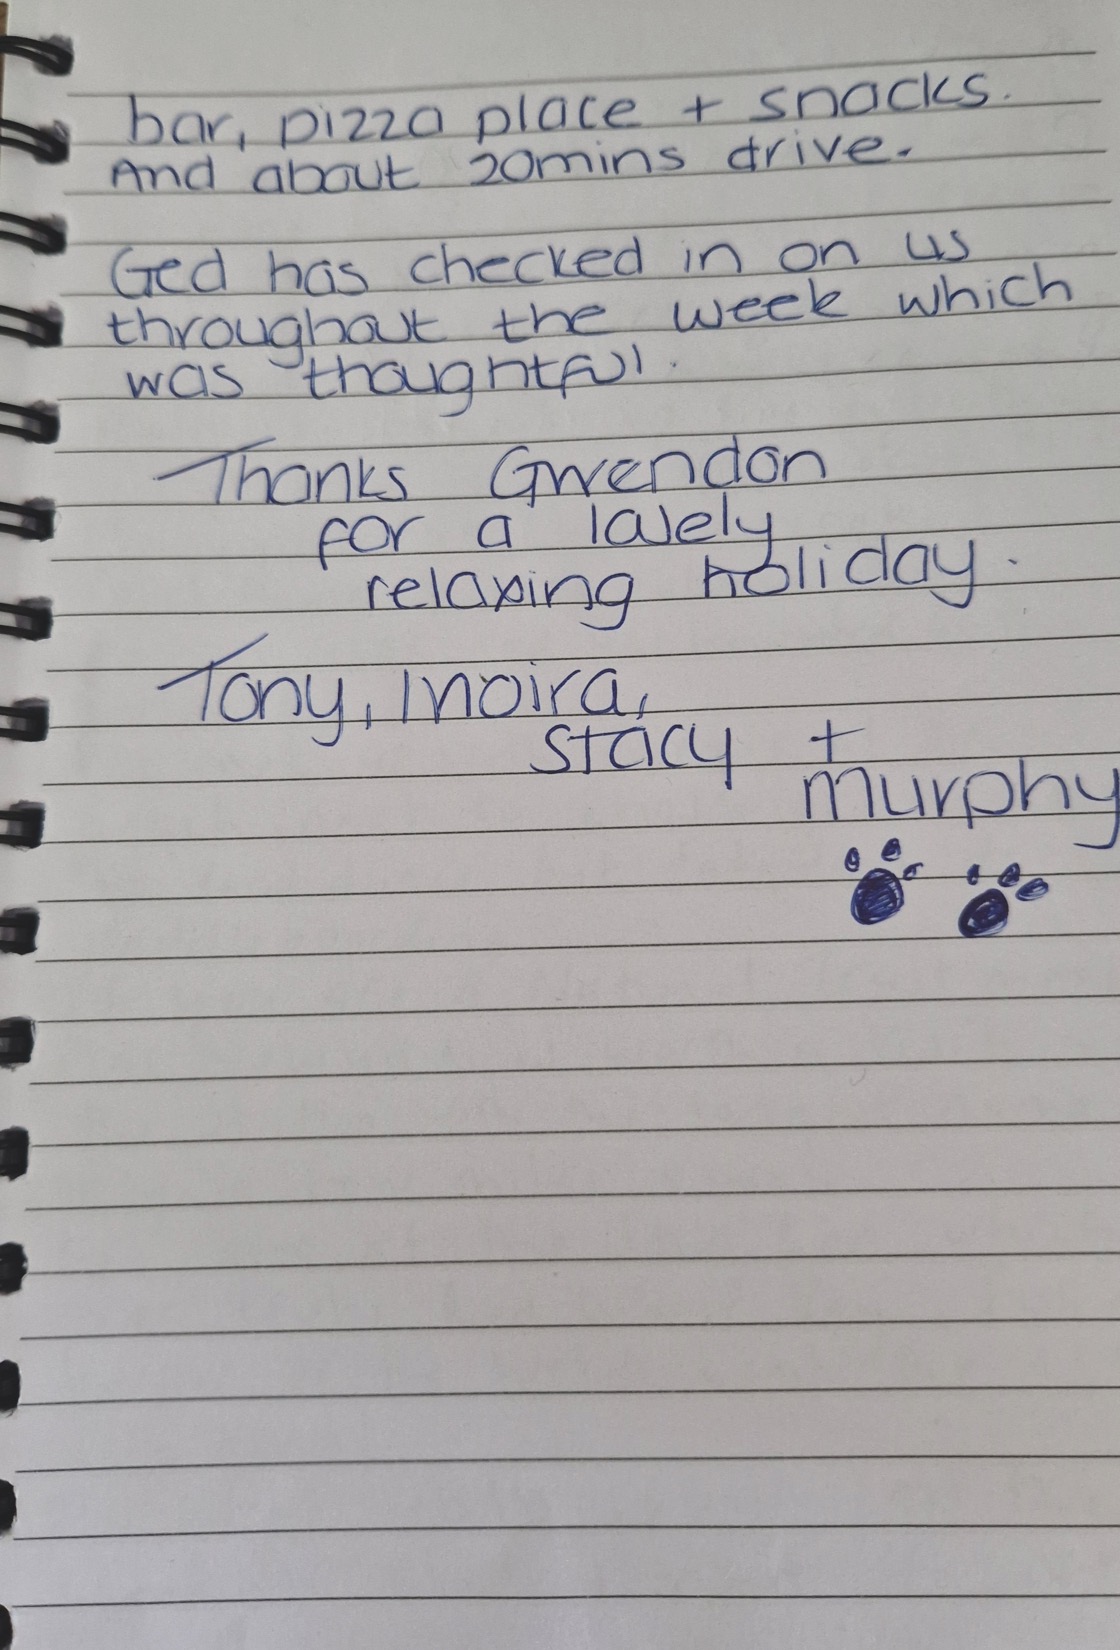 bar, pizza place + snacks.
And about 20mins drive.
Ged has checked in on us
throughout the week which
was thoughtful.
Thanks Gwendon
for a lovely
relaxing holiday.
Tony, Moira,
Stacy +
Murphy